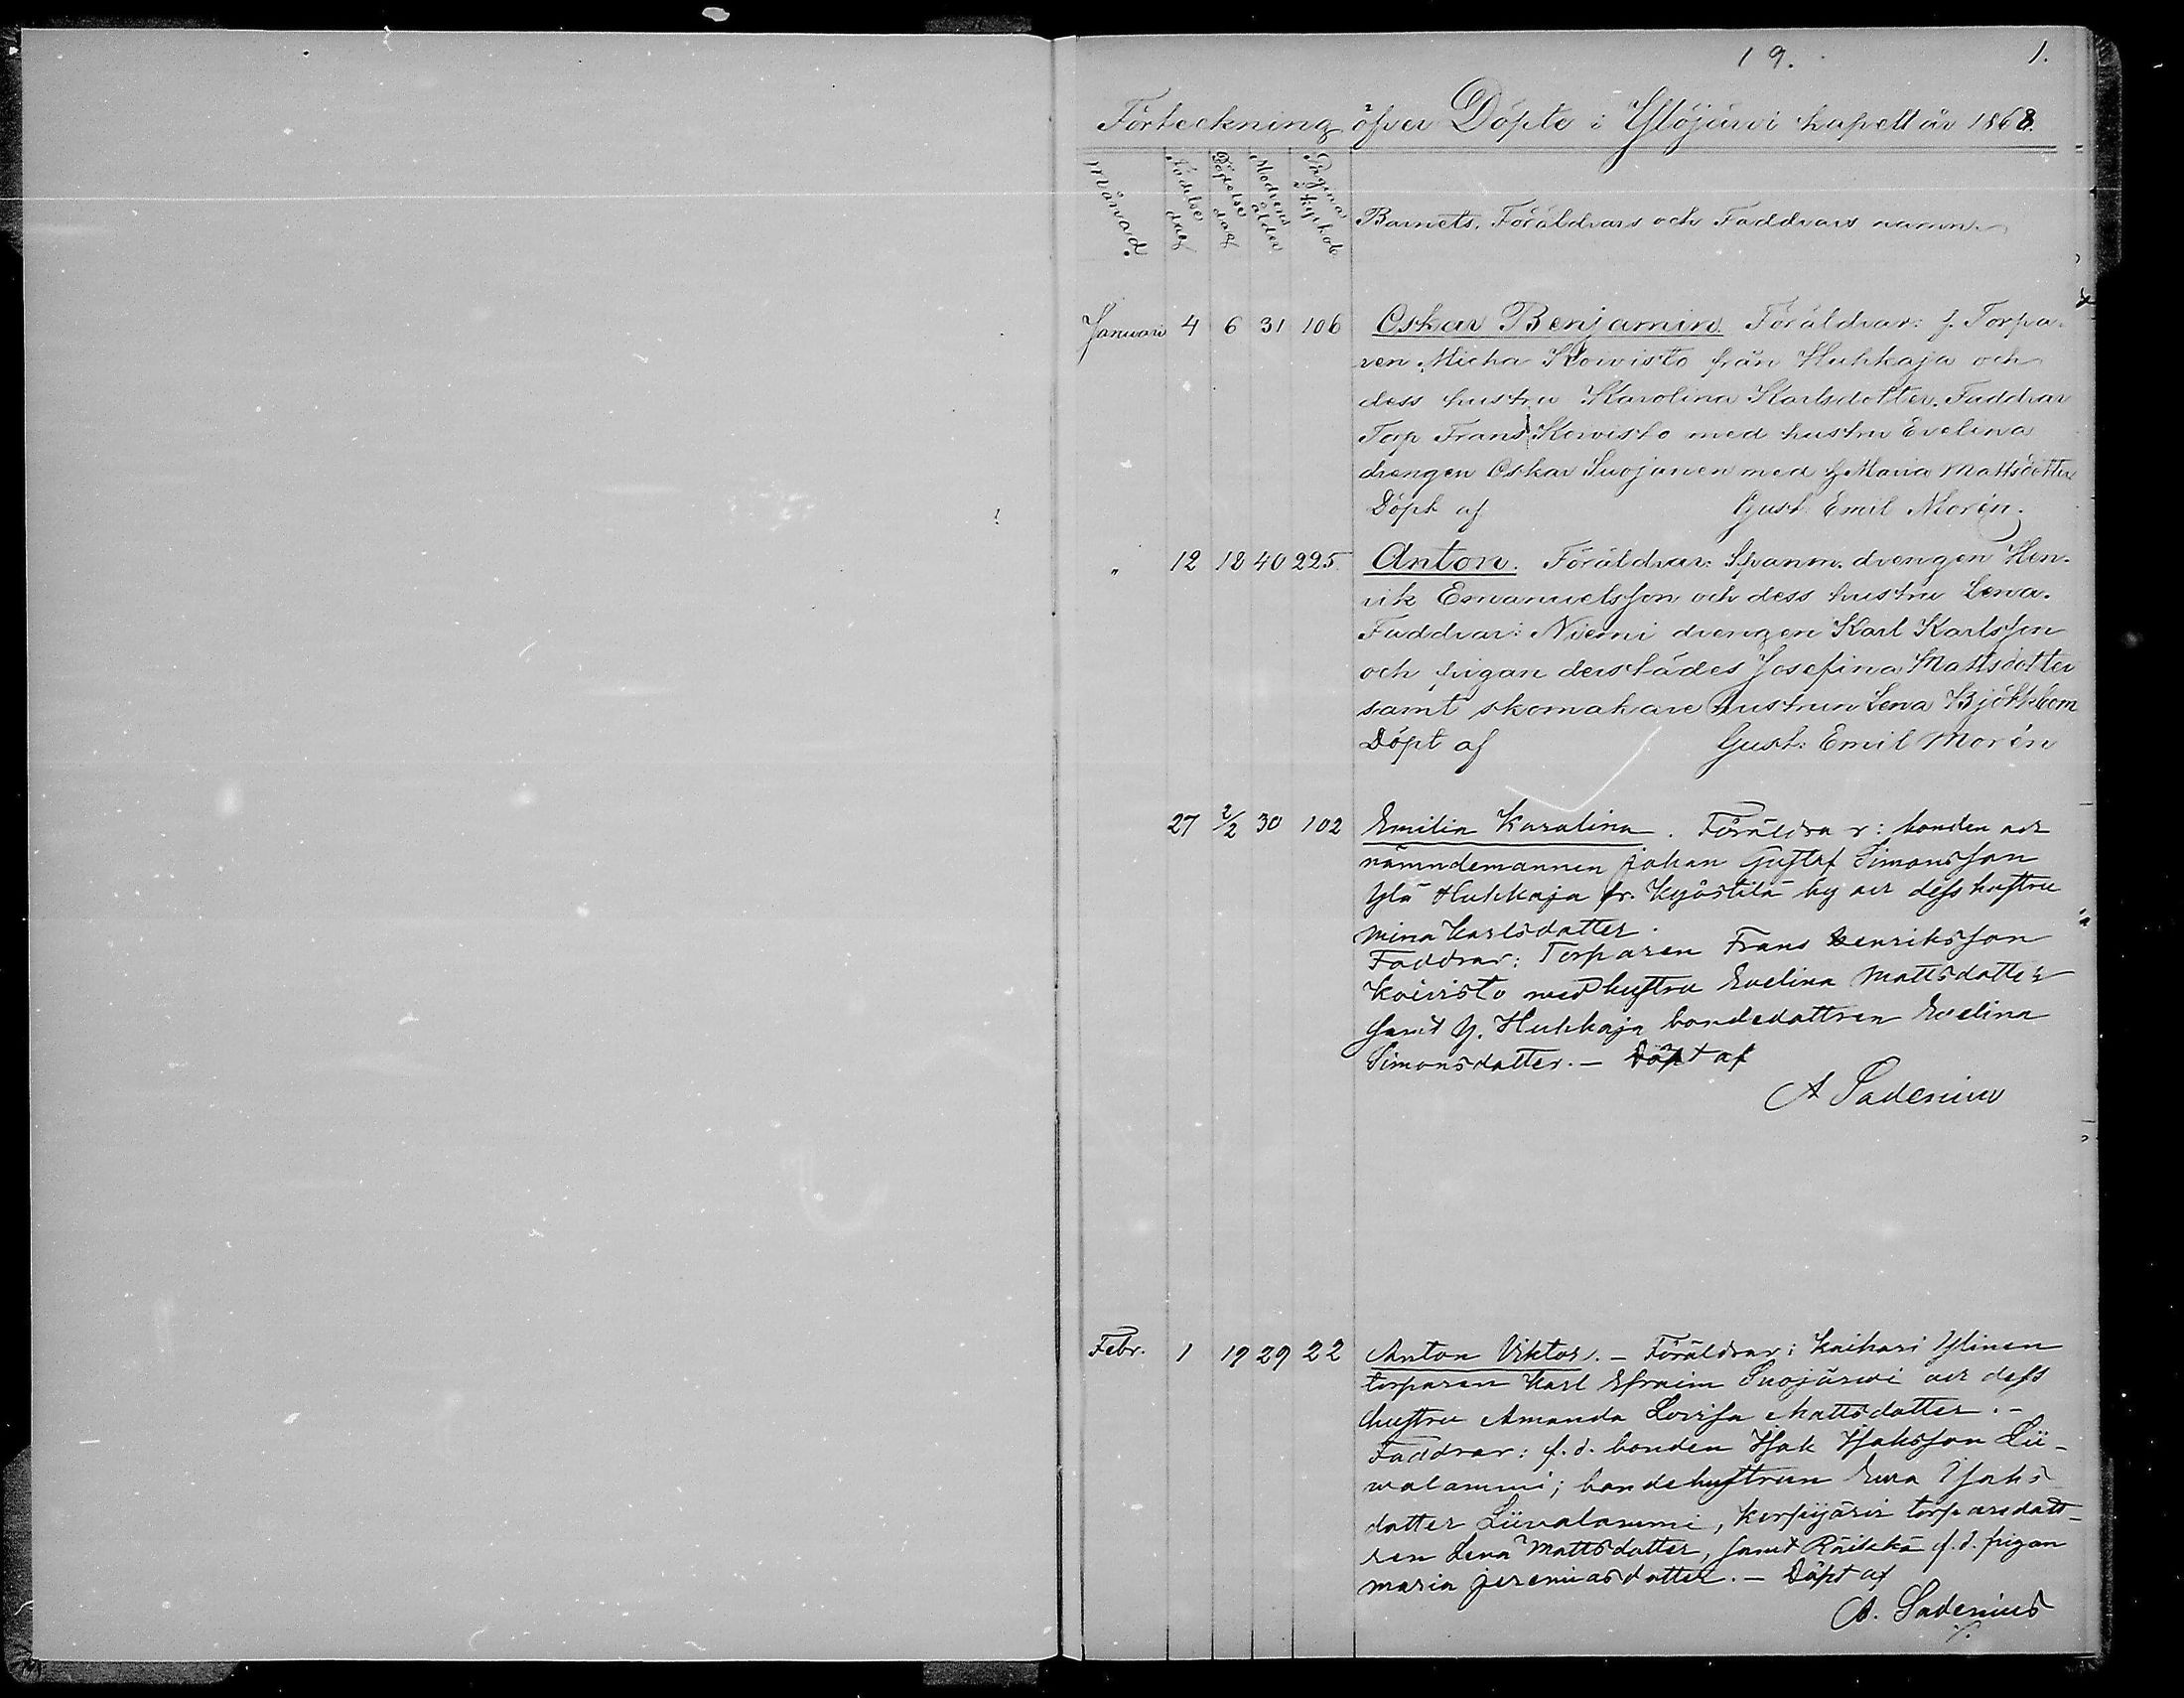 19. 1.
Förteckning öfver Döpte i Ylöjärvi kapell år 1868.
Månad. Födelse dag Döpelse dag Modrens ålder Pagina i kyrkob. Barnets, Föräldrars och Faddrars namn
Januari 4 6 31 106 Oskar Benjamin Föräldrar: f. Torpa-
ren Micha Koivisto från Huhkaja och
dess hustru Karolina Karlsdotter. Faddrar
Torp Frans Koivisto med hustru Evelina
drengen Oskar Suojanen med h Maria Mattsdotter
Döpt af Gust. Emil Morén.
" 12 18 40 225. Anton. Föräldrar: Spanm. drengen Hen-
rik Emanuelsson och dess hustru Lena.
Faddrar: Niemi drengen Karl Karlsson
och pigan derstädes Josefina Mattsdotter
samt skomakare hustrun Lena Björkbom
Döpt af Gust. Emil Morén
27 2/2 30 102 Emilia Karolina. Föräldrar: bonden och
nämndemannen Johan Gustaf Simonsson
Ylä Huhkaja fr. Kyöstilä by och dess hustru
Mina Karlsdotter.
Faddrar: Torparen Frans Henriksson
Koivisto med hustru Evelina Mattsdotter
samt Y. Huhkaja bondedottren Evelina
Simonsdotter. — Döpt af
A Sadenius
Febr. 1 19 29 22 Anton Viktor. — Föräldrar: Kaihari Ylinen
torparen Karl Efraim Suojärwi och dess
hustru Amanda Lovisa Mattsdotter. —
Faddrar: f.d. bonden Isak Isaksson Lii-
walammi; bondehustrun Ewa Isaks
dotter Liivalammi, Korpijärvi torparedott-
ren Lena Mattsdotter, samt Räikkä f.d. pigan
Maria Jeremiasdotter. — Döpt af
A. Sadenius